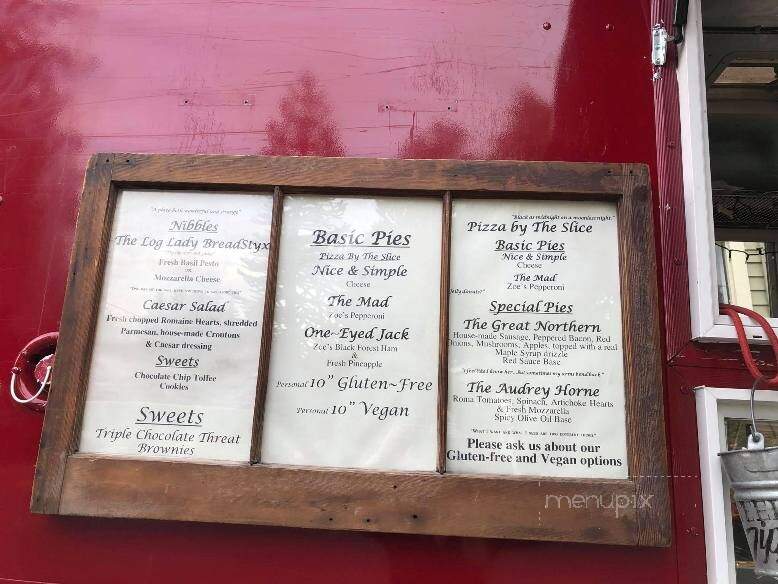 "A place both wonderful and strange"
Nibbles
The Log Lady BreadStyx
Fresh Basil Pesto
or
Mozzarella Cheese
Caesar Salad
Fresh chopped Romaine Hearts, shredded
Parmesan, house-made Crontons
& Caesar dressing
Sweets
Chocolate Chip Toffee
Cookies
Sweets
Triple Chocolate Threat
Brownies
Basic Pies
Pizza By The Slice
Nice & Simple
Cheese
The Mad
Zoe's Pepperoni
One~Eyed Jack
Zoe's Black Forest Ham
&
Fresh Pineapple
Personal 10" Gluten~Free
Personal 10" Vegan
"Black as midnight on a moonless night."
Pizza by The Slice
Basic Pies
Nice & Simple
Cheese
The Mad
Zoe's Pepperoni
Jelly donuts?"
Special Pies
The Great Northern
House-made Sausage, Peppered Bacon, Red
Onions, Mushrooms, Apples, topped with a real
Maple Syrup drizzle
Red Sauce Base
The Audrey Horne
Roma Tomatoes, Spinach, Artichoke Hearts
& Fresh Mozzarella
Spicy Olive Oil Base
Please ask us about our
Gluten-free and Vegan options
menupix